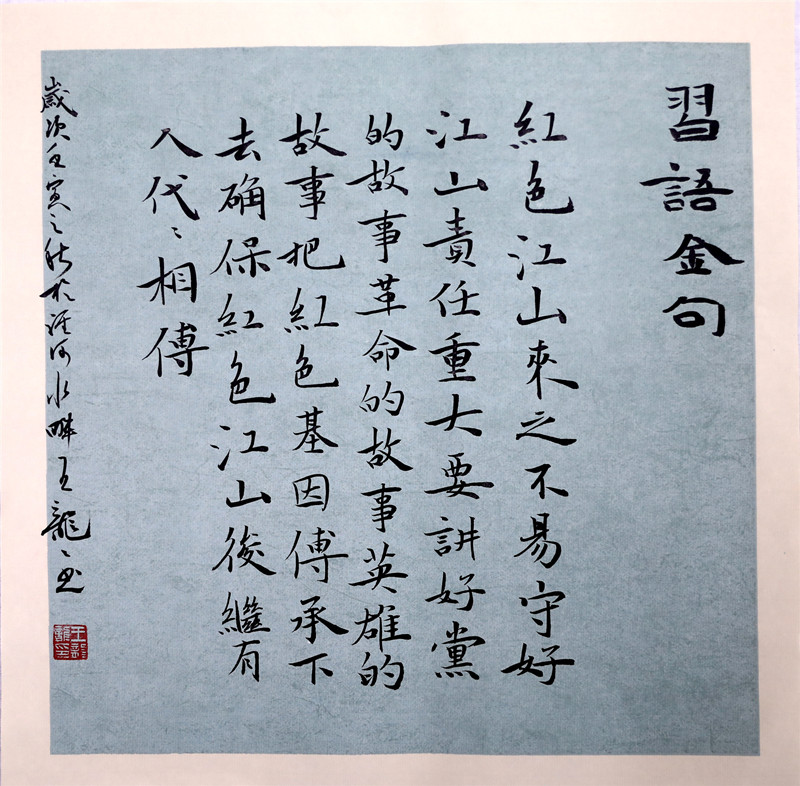 習語金句
紅色江山來之不易守好
江山責任重大要講好黨
的故事革命的故事英雄的
故事把紅色基因傅承下
去确保紅色江山後繼有
人代〻相傅
歲次壬寅之秋於涇河水畔王龍〻書